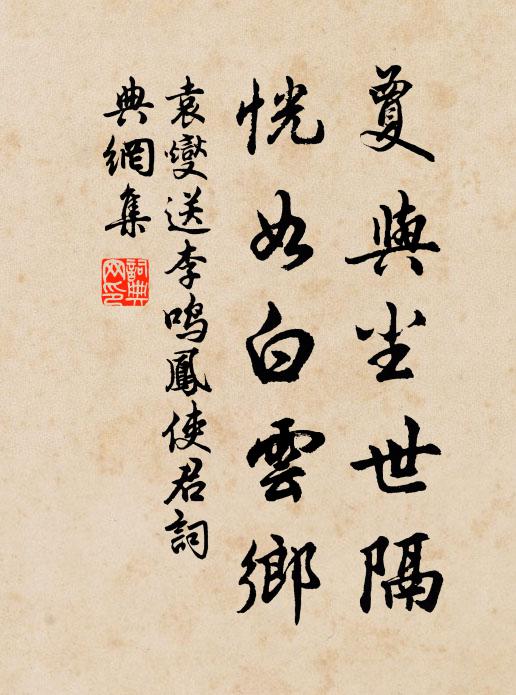 夐與尘世隔
恍如白雲鄉
袁燮送李鸣鳳使君詞
典網集
詞典
网印